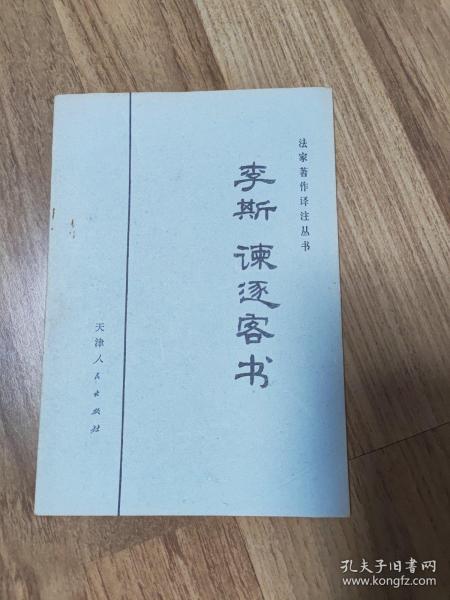 法家著作译注丛书
李斯 谏逐客书
天津人民出版社
孔夫子旧书网
www.kongfz.com